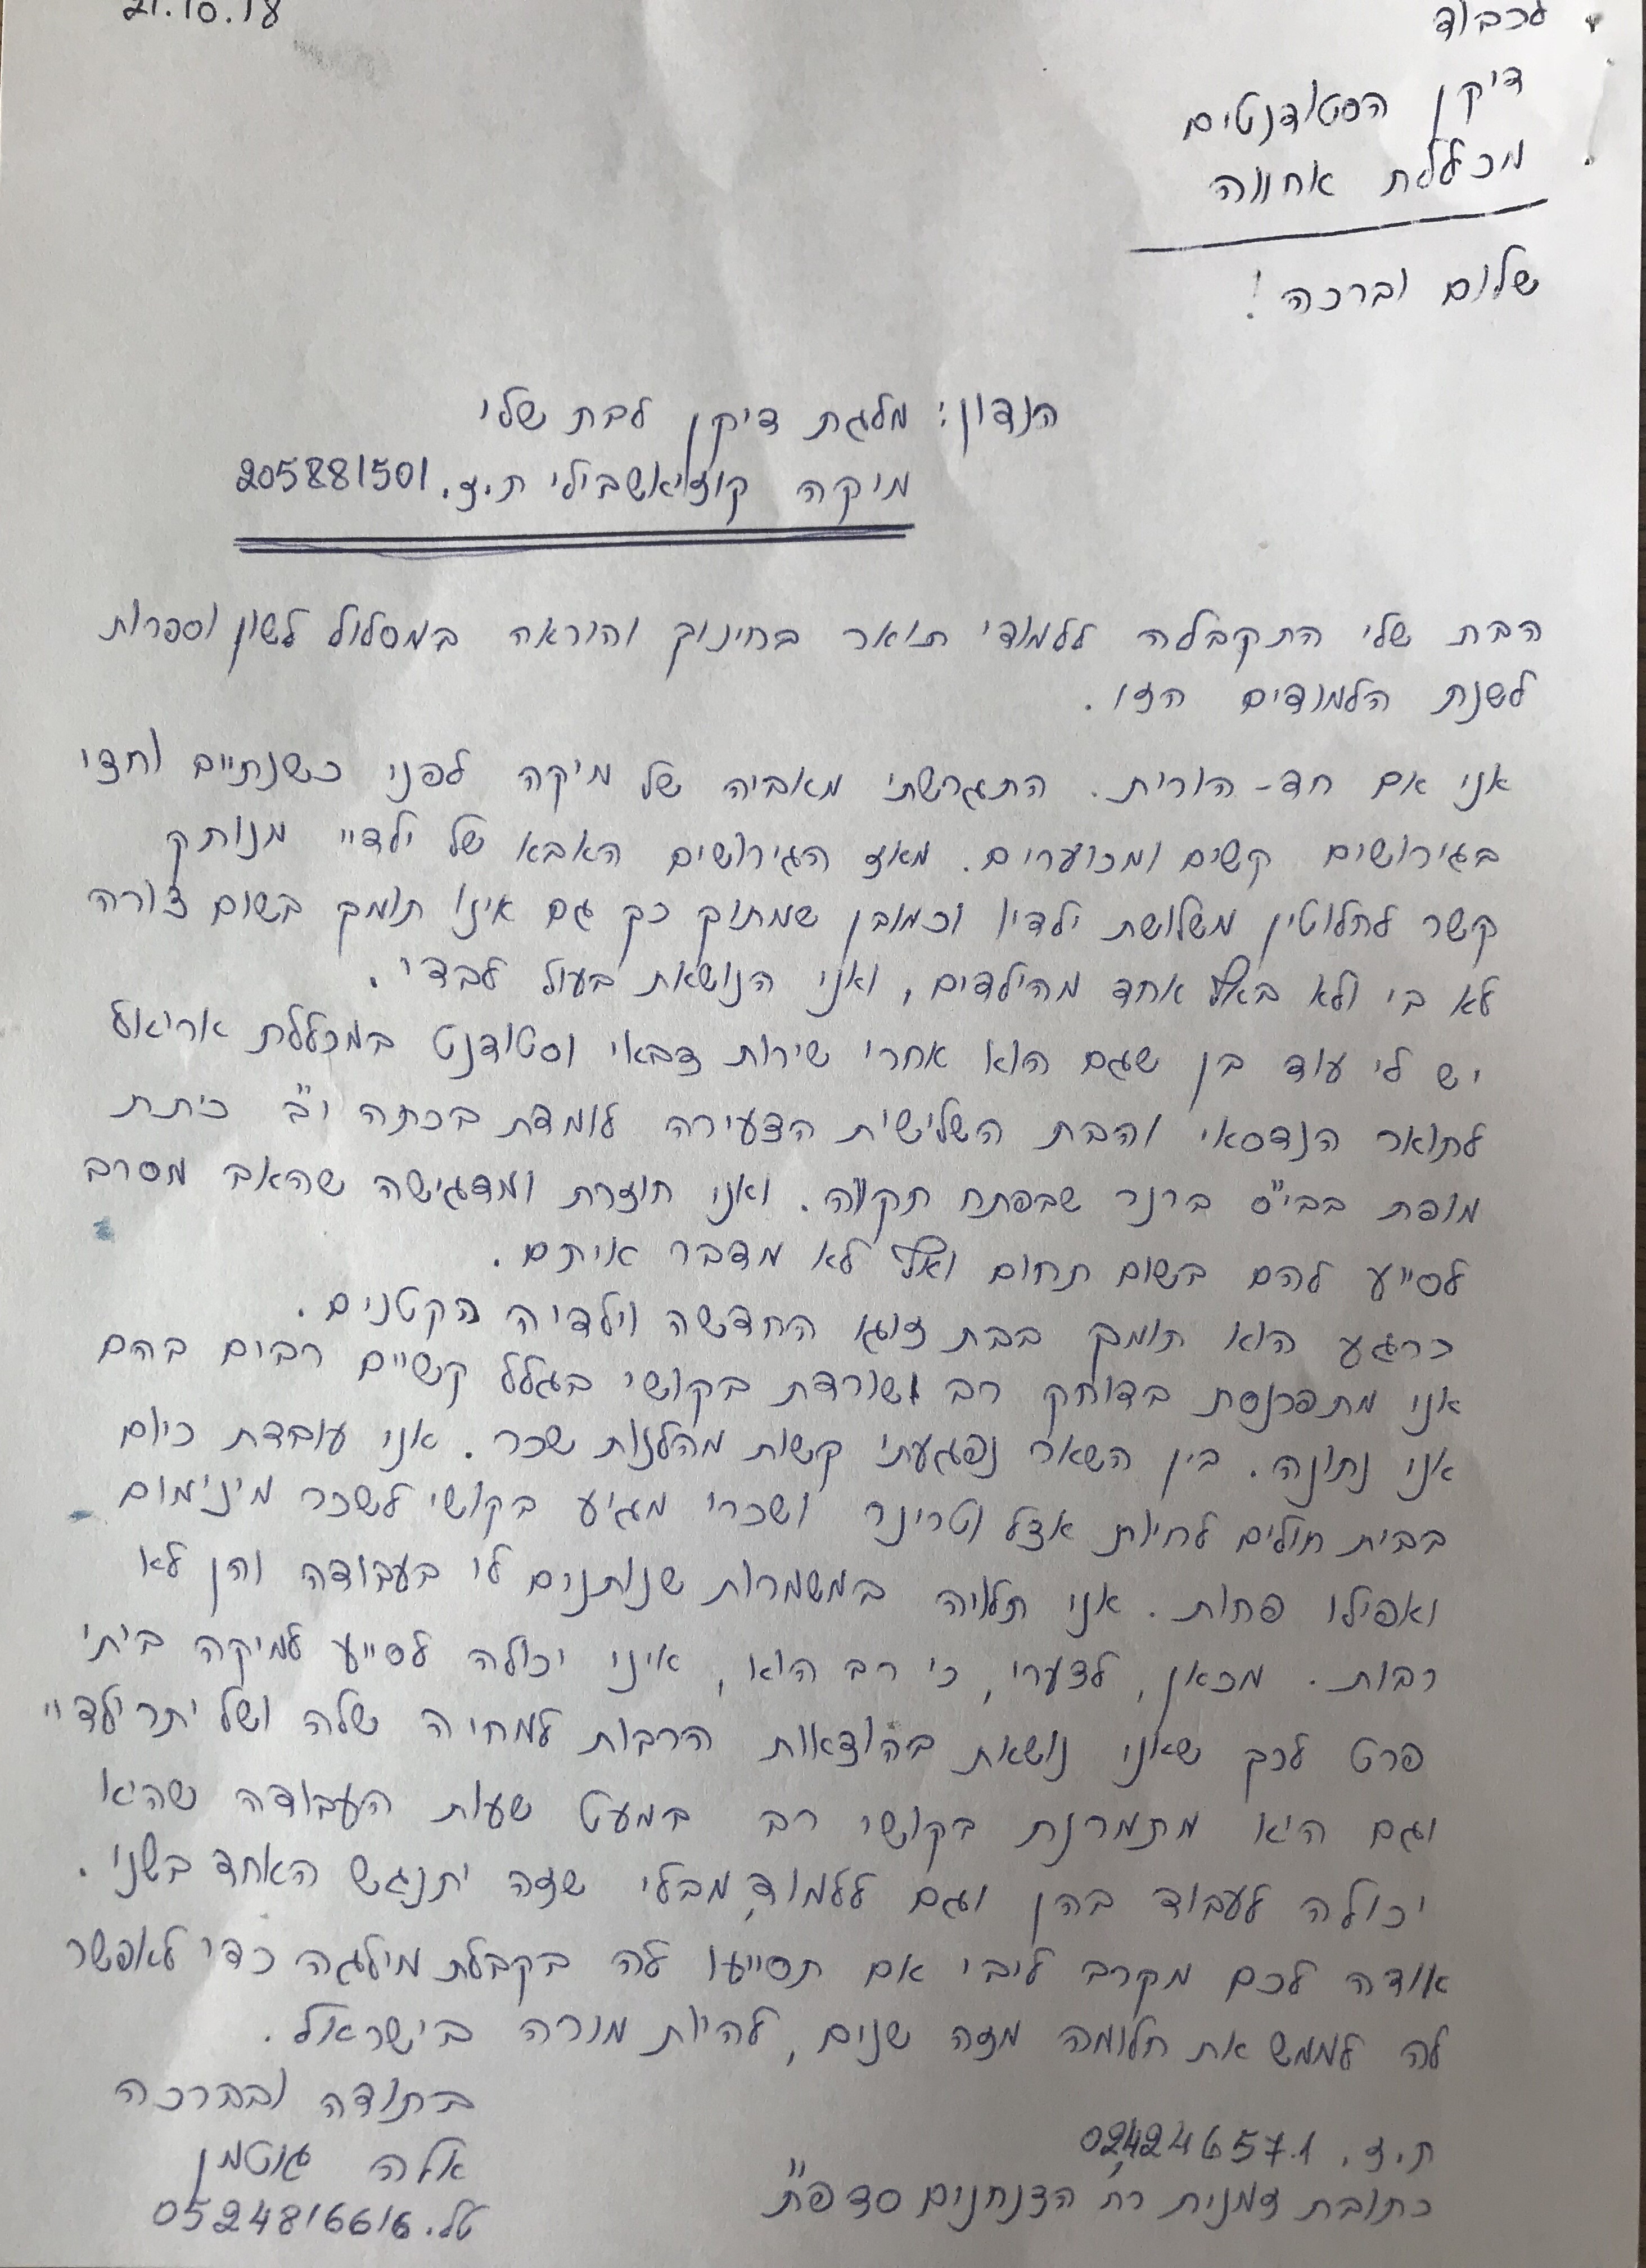 21.10.18
לכבוד
דיקן הסטודנטים
מכללת אחווה
שלום וברכה!
הנדון: מלגת דיקן לבת שלי
מיקה קוזיאשבילי ת.ז. 205881501
הבת שלי התקבלה ללמודי תואר בחינוך והוראה במסלול לשון וספרות
לשנת הלמודים הזו.
אני אם חד-הורית. התגרשתי מאביה של מיקה לפני כשנתיים וחצי
בגירושים קשים ומכוערים. מאז הגירושים האבא של ילדיי מנותק
קשר לחלוטין משלושת ילדיו וכמובן שמתוך כך גם אינו תומך בשום צורה
לא בי ולא באף אחד מהילדים, ואני הנושאת בעול לבדי.
יש לי עוד בן שגם הוא אחרי שירות צבאי וסטודנט במכללת אריאל
לתואר הנדסאי והבת השלישית הצעירה לומדת בכתה י"ב כיתת
מופת בבי"ס ברנר שבפתח תקווה. ואני חוזרת ומדגישה שהאב מסרב
לסייע להם בשום תחום ואף לא מדבר איתם.
כרגע הוא תומך בבת זוגו החדשה וילדיה הקטנים.
אני מתפרנסת בדוחק רב ושורדת בקושי בגלל קשיים רבים בהם
אני נתונה. בין השאר נפגעתי קשות מהלנות שכר. אני עובדת כיום
בבית חולים לחיות אצל וטרינר ושכרי מגיע בקושי לשכר מינימום
ואפילו פחות. אני תלויה במשמרות שנותנים לי בעבודה והן לא
רבות. מכאן, לצערי, כי רב הוא, איני יכולה לסייע למיקה ביתי
פרט לכך שאני נושאת בהוצאות הרבות למחיה שלה ושל יתר ילדיי
וגם היא מתמרנת בקושי רב במעט שעות העבודה שהיא
יכולה לעבוד בהן וגם ללמוד, מבלי שזה יתנגש האחד בשני.
אודה לכם מקרב ליבי אם תסייעו לה בקבלת מילגה כדי לאפשר
לה לממש את חלומה מזה שנים, להיות מורה בישראל.
בתודה ובברכה
אלה גוטמן
טל. 0524816616
ת.ז. 024246571
כתובת זמנית רח' הצנחנים פ"ת